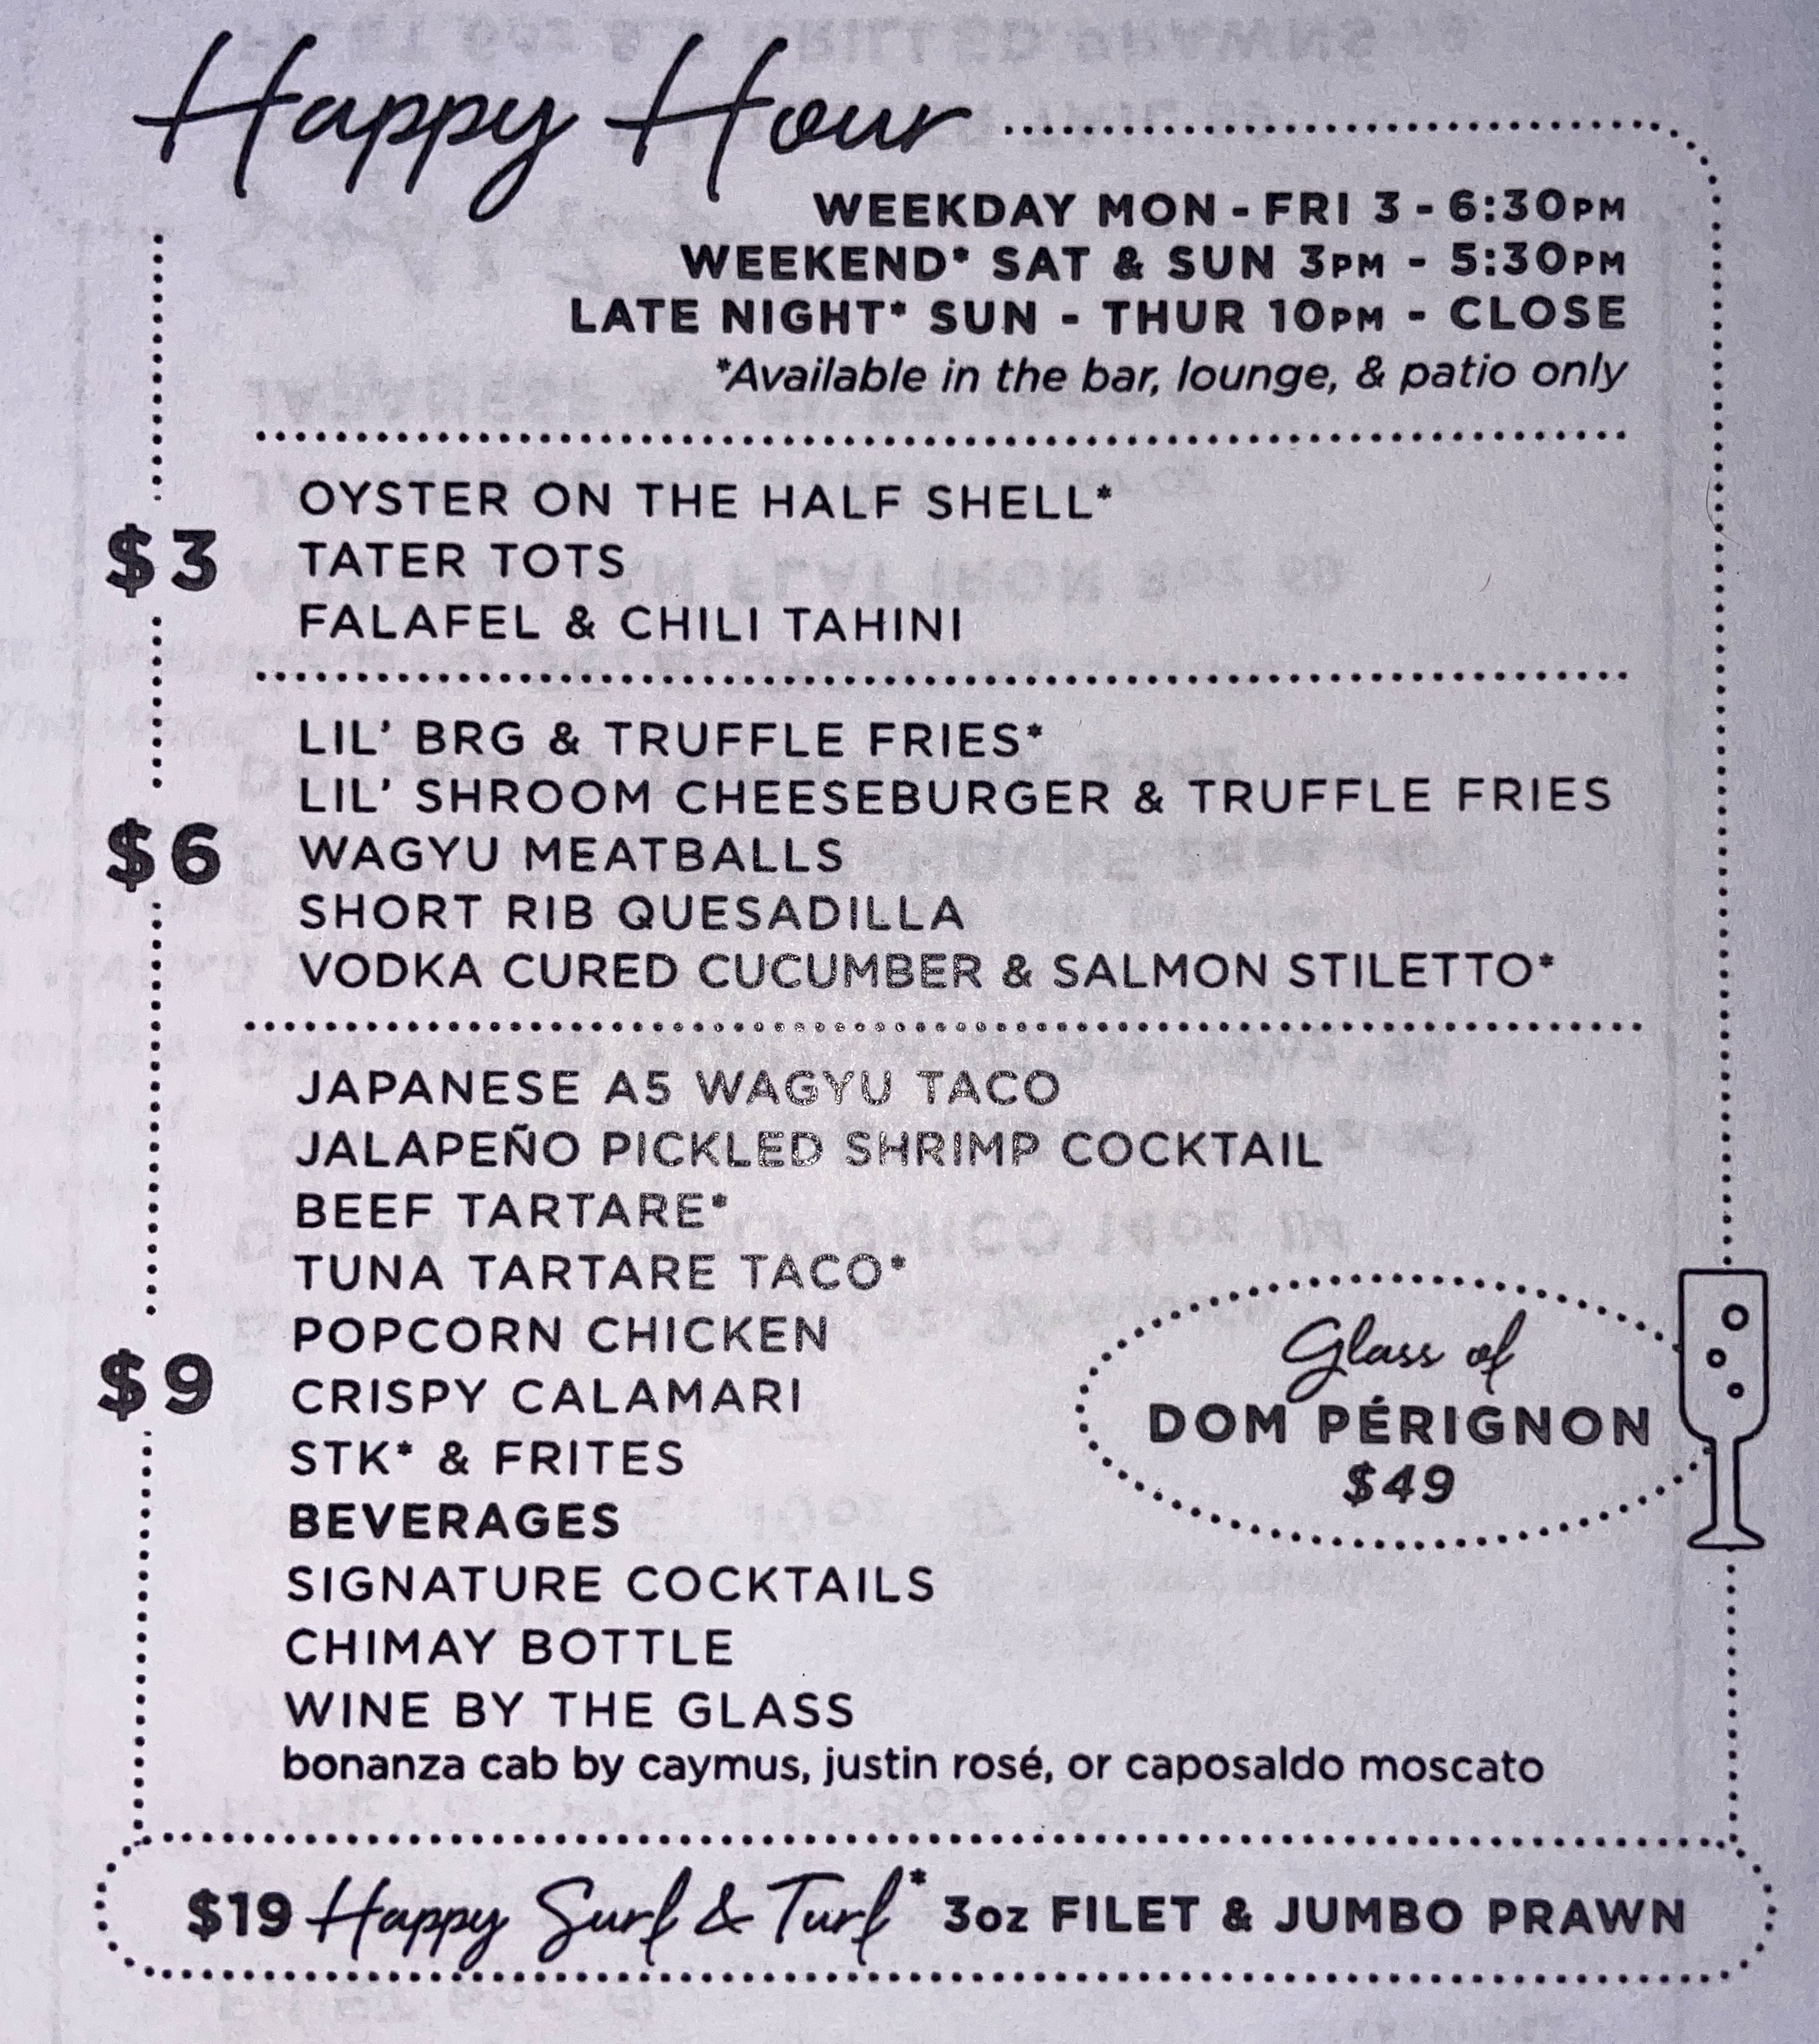 Happy Hour
WEEKDAY MON - FRI 3 - 6:30PM
WEEKEND* SAT & SUN 3PM - 5:30PM
LATE NIGHT* SUN - THUR 10PM - CLOSE
*Available in the bar, lounge, & patio only
$3
OYSTER ON THE HALF SHELL*
TATER TOTS
FALAFEL & CHILI TAHINI
$6
LIL' BRG & TRUFFLE FRIES*
LIL' SHROOM CHEESEBURGER & TRUFFLE FRIES
WAGYU MEATBALLS
SHORT RIB QUESADILLA
VODKA CURED CUCUMBER & SALMON STILETTO*
$9
JAPANESE A5 WAGYU TACO
JALAPEÑO PICKLED SHRIMP COCKTAIL
BEEF TARTARE*
TUNA TARTARE TACO*
POPCORN CHICKEN
CRISPY CALAMARI
STK* & FRITES
BEVERAGES
SIGNATURE COCKTAILS
CHIMAY BOTTLE
WINE BY THE GLASS
bonanza cab by caymus, justin rosé, or caposaldo moscato
Glass of
DOM PÉRIGNON
$49
$19 Happy Surf & Turf* 3oz FILET & JUMBO PRAWN